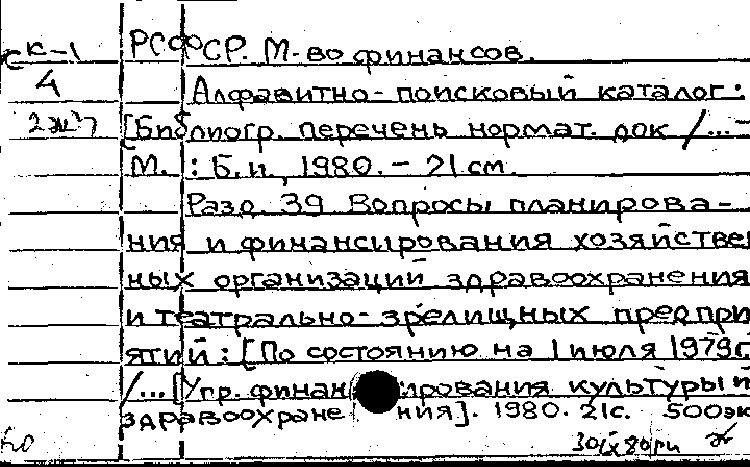 СК-1 РСФСР. М-во финансов.
4 Алфавитно-поисковый каталог:
[Библиогр. перечень нормат. док /...-
М. : Б.и., 1980. - 21 см.
Разд. 39 Вопросы планирова-
ния и финансирования хозяйстве
ных организаций здравоохранения
и театрально-зрелищных предпри
ятий : [По состоянию на 1 июля 1979г
/... [Упр. финан ирования культуры и
здравоохране ния]. 1980. 21с. 500эк